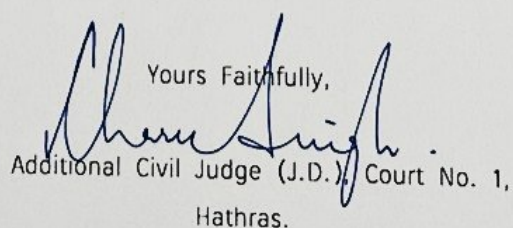 Yours Faithfully,
Charu Singh.
Additional Civil Judge (J.D.), Court No. 1,
Hathras.